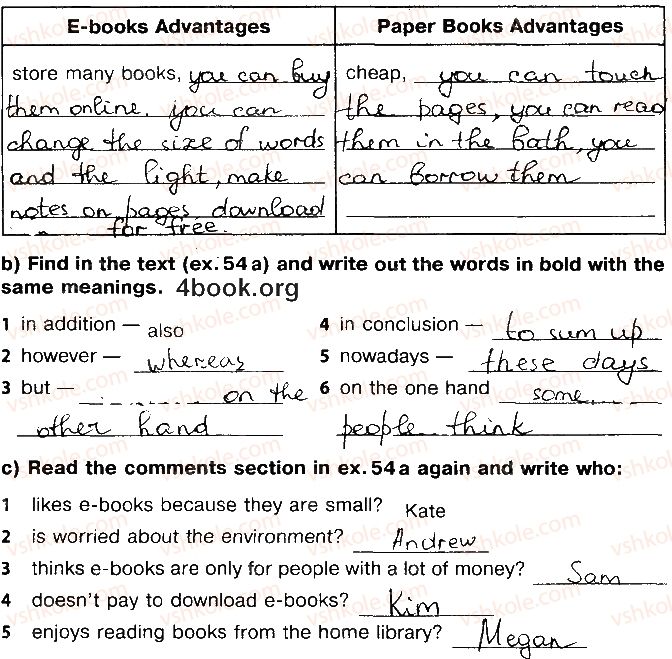 E-books Advantages
Paper Books Advantages
store many books, you can buy
them online. you can
change the size of words
and the light, make
notes on pages, download
for free.
cheap, you can touch
the pages, you can read
them in the bath, you
can borrow them
b) Find in the text (ex. 54 a) and write out the words in bold with the
same meanings. 4book.org
1 in addition — also
2 however — whereas
3 but — on the
other hand
4 in conclusion — to sum up
5 nowadays — these days
6 on the one hand some
people think
c) Read the comments section in ex. 54 a again and write who:
1 likes e-books because they are small? Kate
2 is worried about the environment? Andrew
3 thinks e-books are only for people with a lot of money? Sam
4 doesn't pay to download e-books? Kim
5 enjoys reading books from the home library? Megan
vshkole.com